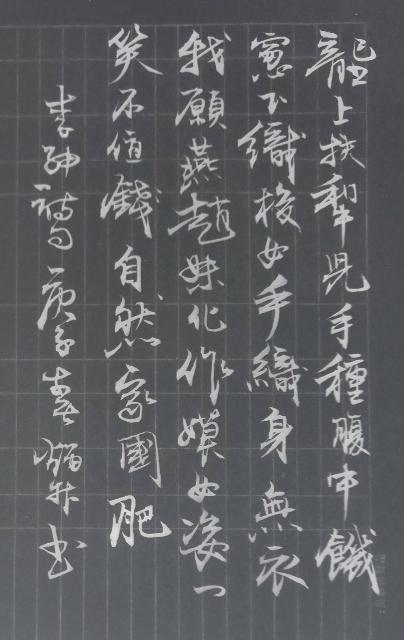 龍上扶犁兒手種腹中饑
窓下織梭女手織身無衣
我願燕趙姝化作嫫女姿一
笑不值錢自然家國肥
李紳詩庚子春升书